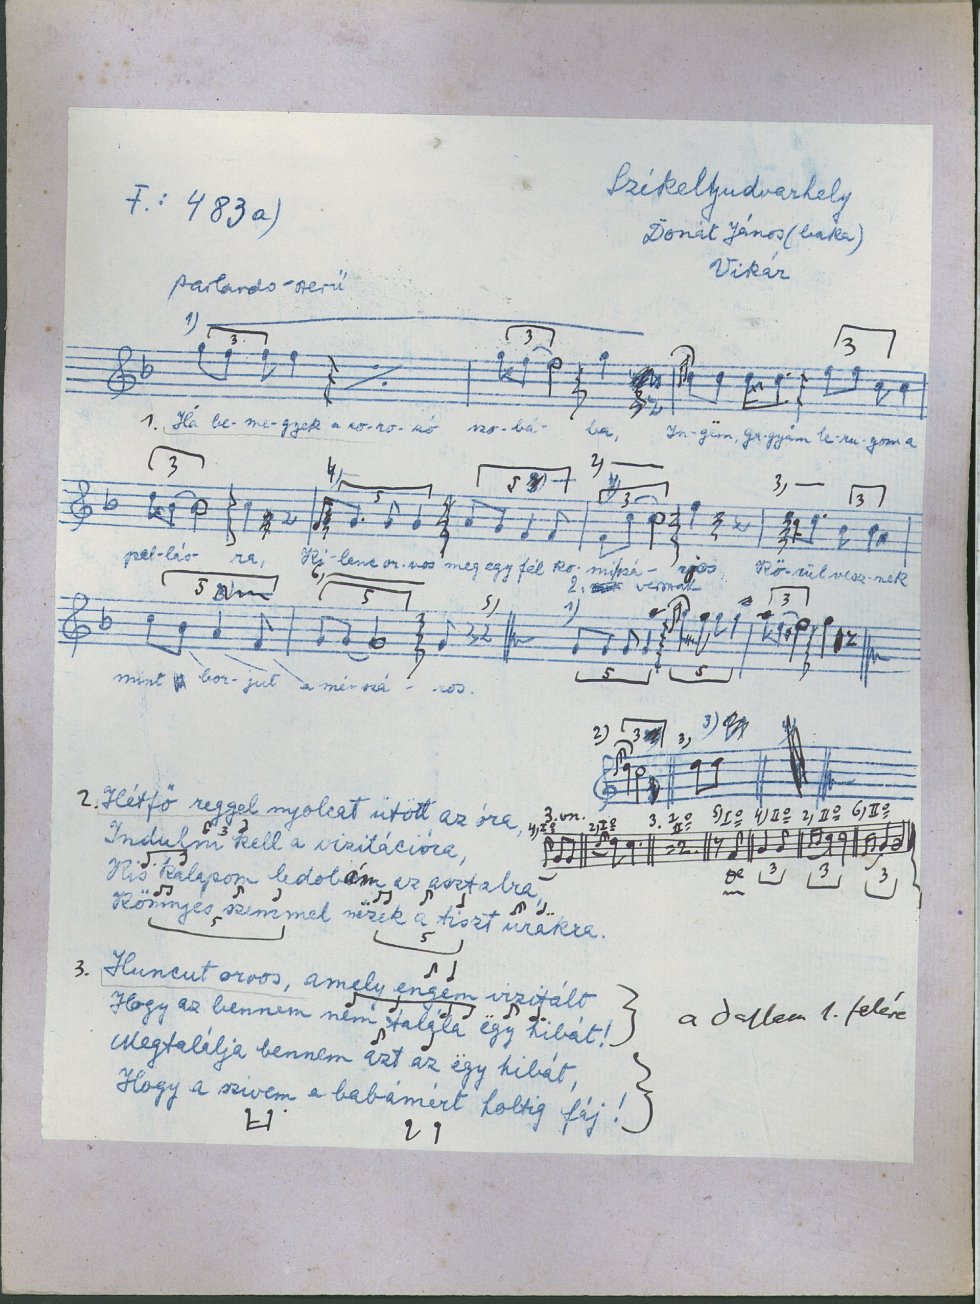 F.: 483a)
Székelyudvarhely
Donát János (baka)
Vikár
parlando-szerű
1)
3
3
3
1. Há be-me-gyek a so-ro-zó szo-bá-ba, In-gëm, ga-gyám le-ru-gom a
3
4)
5
5
2)
3
3)
3
pal-lás-ra, Ki-lenc or-vos meg egy fél ko-mi-sá-rjos Kö-rül vesz-nek
2.
5
6)
5
5)
1)
3
5
5
mint bor-jut a mé-szá-ros.
2)
3
3)
3)
2. Hétfő reggel nyolcat ütött az óra,
Indulni kell a vizitációra,
Kis kalapom ledobám az asztalra,
Könnyes szemmel nézek a tiszt urakra.
3
5
5
3. vn.
3
3
3
3. Huncut orvos, amely engëm vizitált
Hogy az bennem nëm talála ëgy hibát!
Megtalálja bennem azt az ëgy hibát,
Hogy a szívem a babámért holtig fáj!
a dallam 1. felére